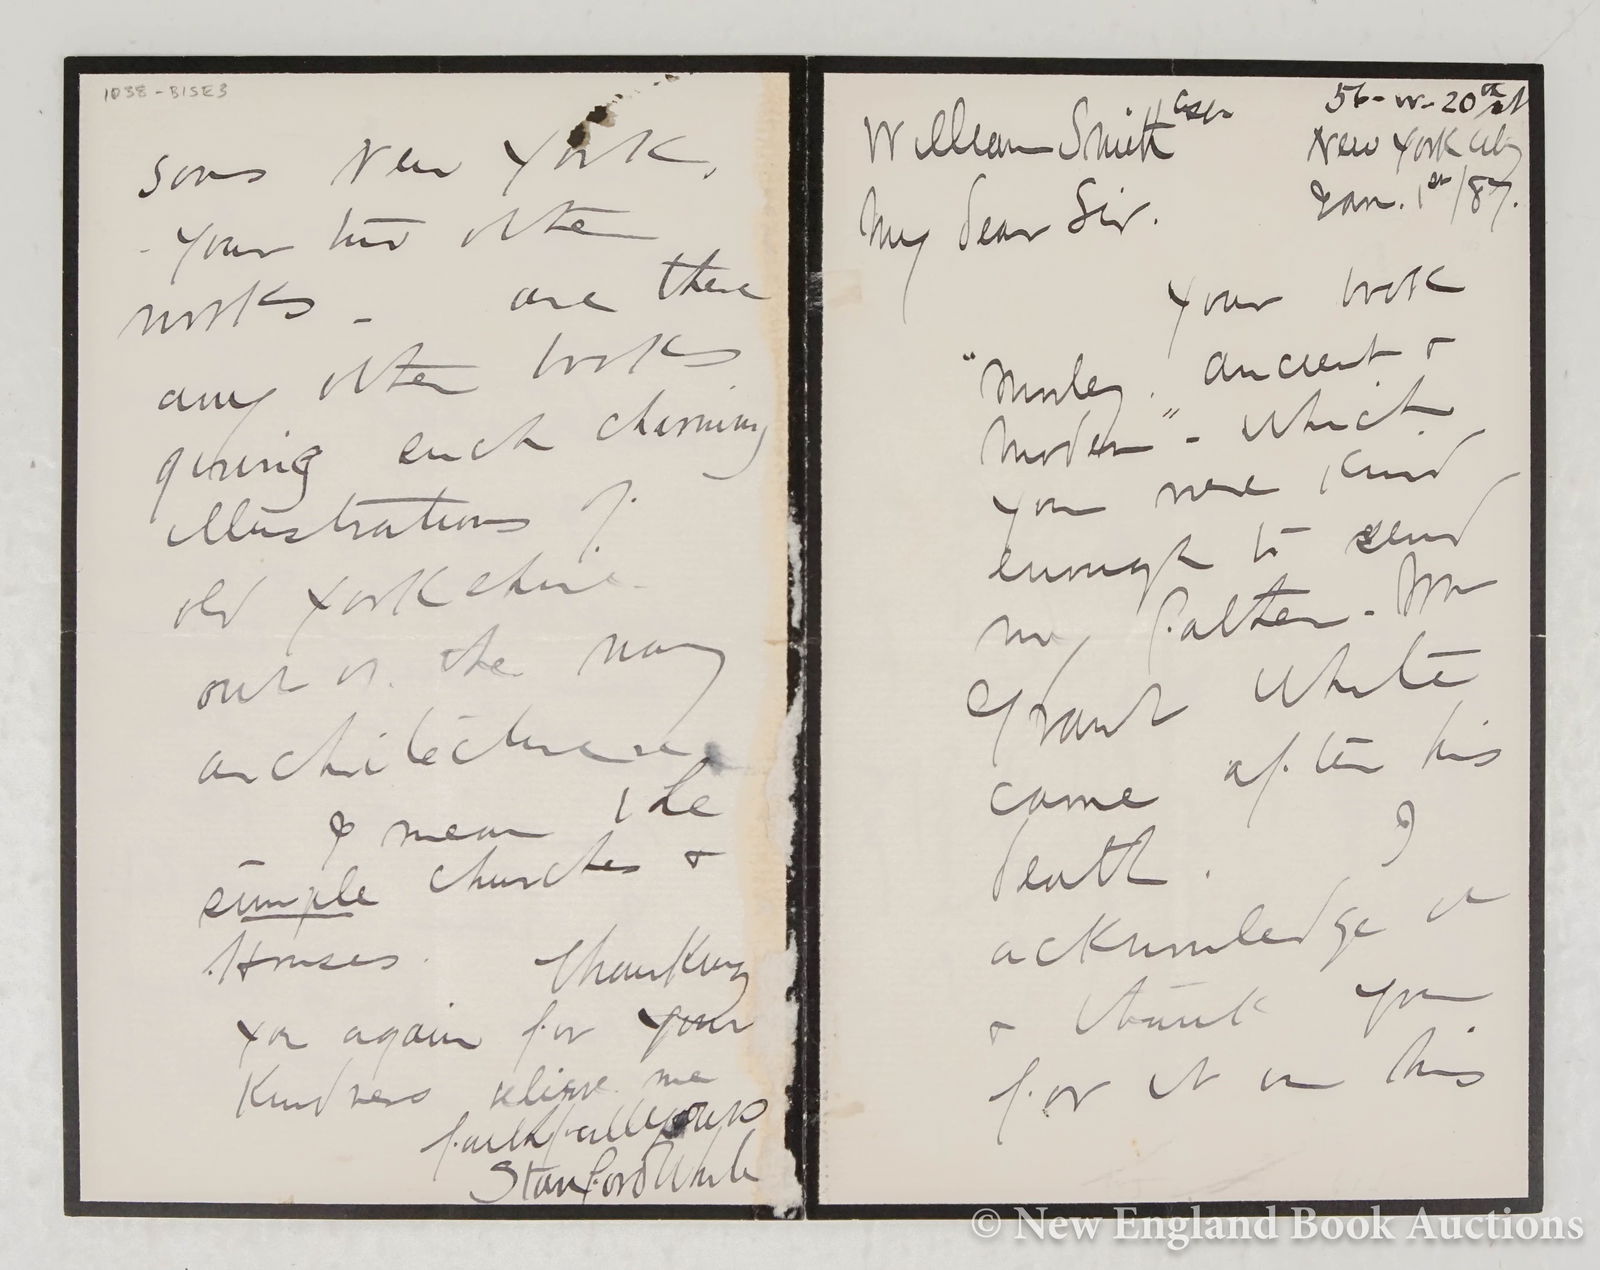 56-W-20th st
New York City
Jan. 1st/87.
William Smith Esqr
My dear Sir.
Your book
"Morley. ancient &
Modern" - which
you were kind
enough to send
my father - Mr
Grant White
came after his
death. I
acknowledge it
& thank you
for it in his
1038-B1SE3
sons New York.
- Your two other
works - are there
any other books
giving such charming
illustrations of
old Yorkshire.
out of the way
architecture
I mean the
simple churches &
Houses. Thanking
you again for your
Kindness believe me
faithfully yours
Stanford White
© New England Book Auctions